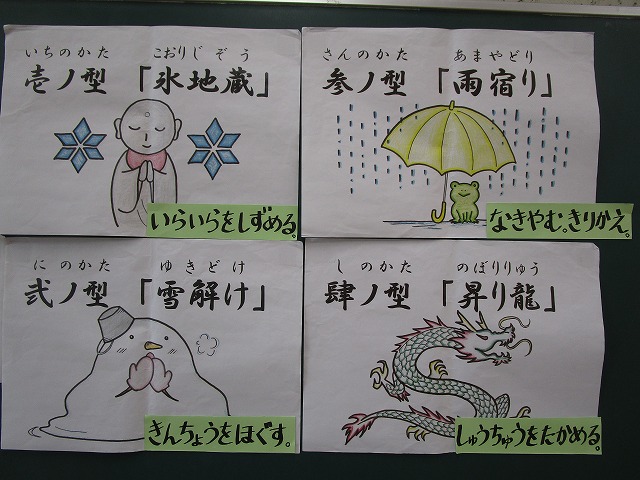 いちのかた こおりじぞう
壱ノ型 「氷地蔵」
いらいらをしずめる。
にのかた ゆきどけ
弐ノ型 「雪解け」
きんちょうをほぐす。
さんのかた あまやどり
参ノ型 「雨宿り」
なきやむ。きりかえ。
しのかた のぼりりゅう
肆ノ型 「昇り龍」
しゅうちゅうをたかめる。